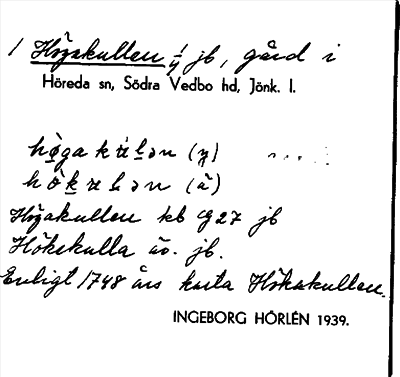 1 Högakullen 1/4 jb, gård i
Höreda sn, Södra Vedbo hd, Jönk. l.
(y)
(ä)
Högakullen kb G27 jb
Hökskulla äo. jb.
Enligt 1748 års karta Hökakullen.
INGEBORG HÖRLÉN 1939.